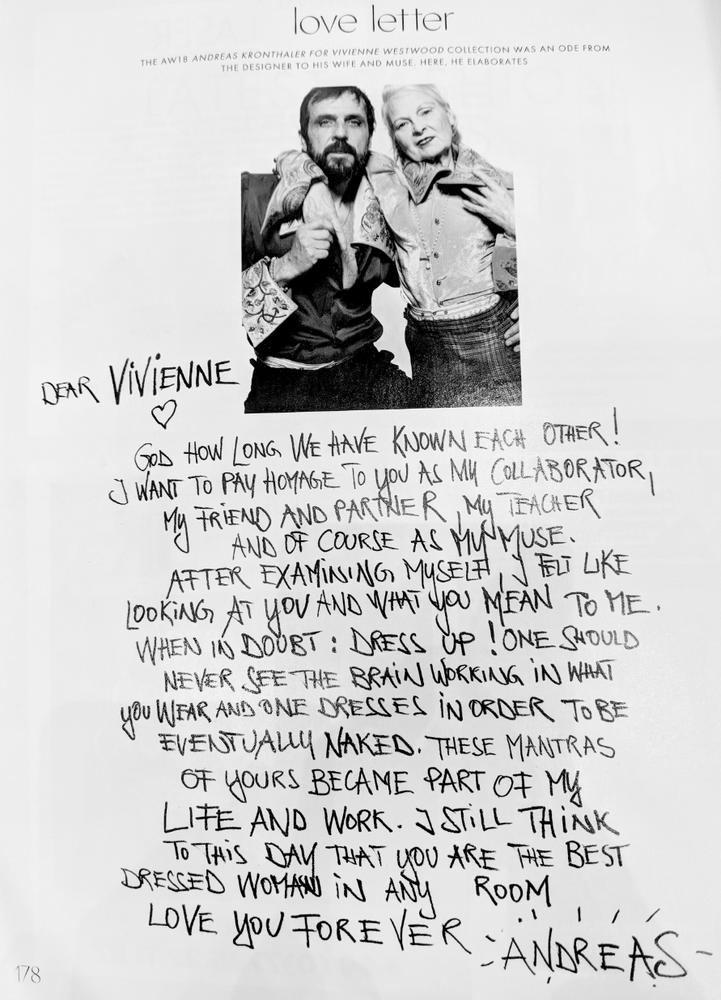 love letter
THE AW18 ANDREAS KRONTHALER FOR VIVIENNE WESTWOOD COLLECTION WAS AN ODE FROM
THE DESIGNER TO HIS WIFE AND MUSE. HERE, HE ELABORATES
DEAR VIVIENNE
GOD HOW LONG WE HAVE KNOWN EACH OTHER!
I WANT TO PAY HOMAGE TO YOU AS MY COLLABORATOR,
MY FRIEND AND PARTNER, MY TEACHER
AND OF COURSE AS MY MUSE.
AFTER EXAMINING MYSELF, I FELT LIKE
LOOKING AT YOU AND WHAT YOU MEAN TO ME.
WHEN IN DOUBT: DRESS UP! ONE SHOULD
NEVER SEE THE BRAIN WORKING IN WHAT
YOU WEAR AND ONE DRESSES IN ORDER TO BE
EVENTUALLY NAKED. THESE MANTRAS
OF YOURS BECAME PART OF MY
LIFE AND WORK. I STILL THINK
TO THIS DAY THAT YOU ARE THE BEST
DRESSED WOMAN IN ANY ROOM
LOVE YOU FOREVER
ANDREAS
178